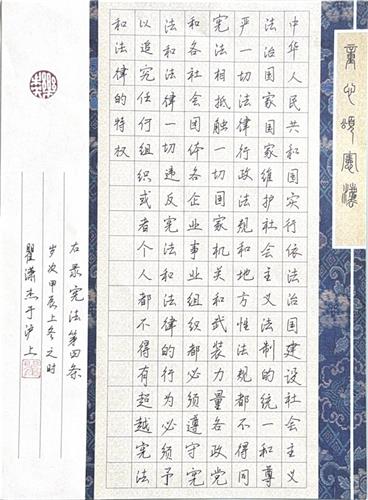 童心頌憲灋
中华人民共和国实行依法治国建设社会主义
法治国家国家维护社会主义法制的统一和尊
严一切法律行政法规和地方性法规都不得同
宪法相抵触一切国家机关和武装力量各政党
和各社会团体各企业事业组织都必须遵守宪
法和法律一切违反宪法和法律的行为必须予
以追究任何组织或者个人都不得有超越宪法
和法律的特权
右录宪法第四条
岁次甲辰上冬之时
瞿潇杰于沪上